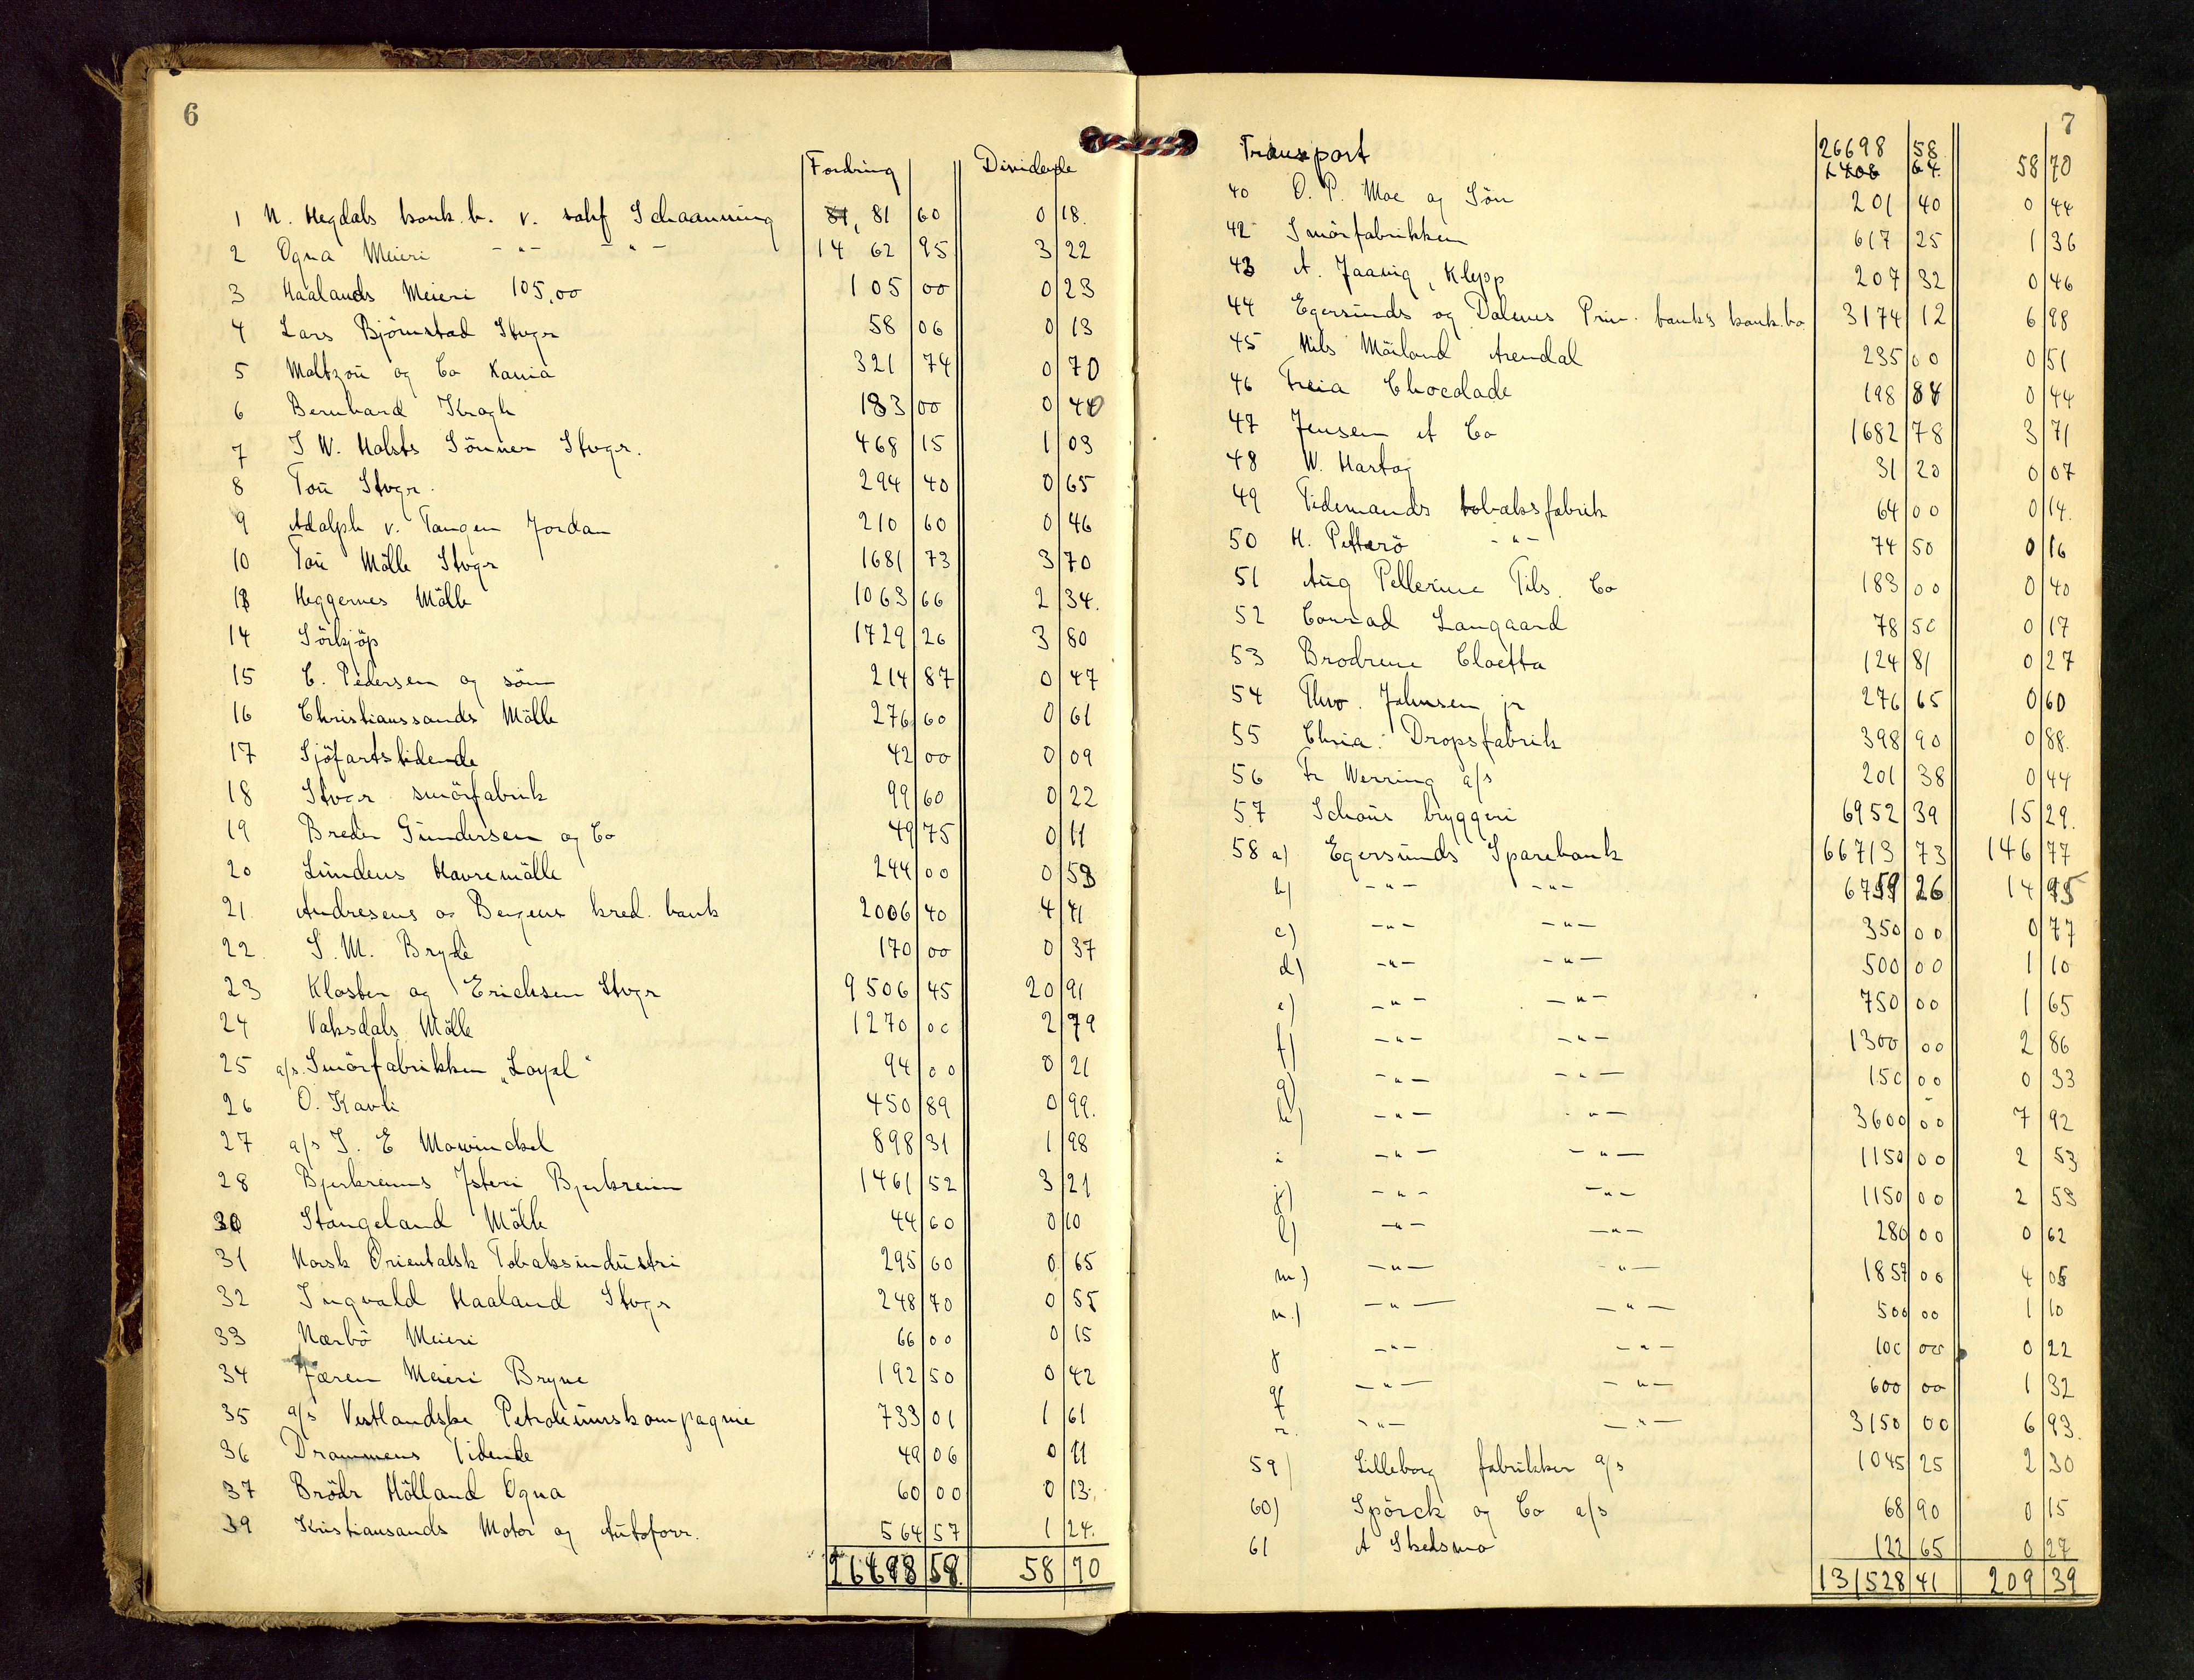 6
Fordring Dividende
1 N. Hegdals konk.b. v. sahf Schaanning 81, 81 60 0 18.
2 Ogna Meieri -"- -"- 14 62 95 3 22
3 Haalands Meieri 105,00 105 00 0 23
4 Lars Björnstad Stvgr 58 06 0 13
5 Maltzou og Co Kania 321 74 0 70
6 Bernhard Krogh 183 00 0 40
7 I W. Holsts Sönner Stvgr. 468 15 1 03
8 Tou Stvgr. 294 40 0 65
9 Adalph v. Tangen Jordan 210 60 0 46
10 Tou Mölle Stvgr 1681 73 3 70
13 Heggernes Mölle 1063 66 2 34.
14 Sörkjöp 1729 26 3 80
15 C. Pedersen og sön 214 87 0 47
16 Christianssands Mölle 276 60 0 61
17 Sjöfartstidende 42 00 0 09
18 Stvgr smörfabrik 99 60 0 22
19 Breder Gundersen og Co 49 75 0 11
20 Lundens Havremölle 244 00 0 53
21. Andresens og Bergens kred. bank 2006 40 4 41
22. S. M. Bryde 170 00 0 37
23 Kloster og Erichsen Stvgr 9 506 45 20 91
24 Vaksdals Mölle 1270 00 2 79
25 a/s. Smörfabrikken „Loyal" 94 00 0 21
26 O. Kavli 450 89 0 99.
27 a/s J. E Mowinckel 898 31 1 98
28 Bjerkreims Ysteri Bjerkreim 1461 52 3 21
30 Stangeland Mölle 44 60 0 10
31 Norsk Orientalsk Tobaksindustri 295 60 0 65
32 Ingvald Haaland Stvgr 248 70 0 55
33 Nærbö Meieri 66 00 0 15
34 Jæren Meieri Bryne 192 50 0 42
35 a/s Vestlandske Petroleumskompagnie 733 01 1 61
36 Drammens Tidende 49 06 0 11
37 Brödr Hölland Ogna 60 00 0 13.
39 Kristiansands Motor og Autoforr. 564 57 1 24.
26698 58. 58 70
7
Transport 26698 58 58 70
40 O. P. Moe og Sön 201 40 0 44
42 Smörfabrikken 617 25 1 36
43 A. Jaavig, Klepp 207 32 0 46
44 Egersunds og Dalenes Priv. banks konk.bo 3174 12 6 98
45 Nils Mæland Arendal 235 00 0 51
46 Freia Chocolade 198 88 0 44
47 Jensen et Co 1682 78 3 71
48 W. Hartog 31 20 0 07
49 Tidemands tobaksfabrik 64 00 0 14.
50 H. Petterö -"- 74 50 0 16
51 Aug Pellerine Fils. Co 183 00 0 40
52 Conrad Langaard 78 50 0 17
53 Brodrene Cloetta 124 81 0 27
54 Thvo. Johnsen jr 276 65 0 60
55 Chria. Dropsfabrik 398 90 0 88.
56 Fr Werring a/s 201 38 0 44
57 Schous bryggeri 6952 39 15 29.
58 a) Egersunds Sparebank 66713 73 146 77
b) -"- -"- 6759 26 14 95
c) -"- -"- 350 00 0 77
d) -"- -"- 500 00 1 10
e) -"- -"- 750 00 1 65
f) -"- -"- 1300 00 2 86
g) -"- -"- 150 00 0 33
h) -"- -"- 3600 00 7 92
i -"- -"- 1150 00 2 53
j) -"- -"- 1150 00 2 53
l) -"- -"- 280 00 0 62
m) -"- -"- 1857 00 4 08
n.) -"- -"- 500 00 1 10
p -"- -"- 100 00 0 22
q -"- -"- 600 00 1 32
r. -"- -"- 3150 00 6 93.
59) Lilleborg fabrikker a/s 1045 25 2 30
60) Spörck og Co a/s 68 90 0 15
61 A Skedsmo 122 65 0 27
131528 41 209 39